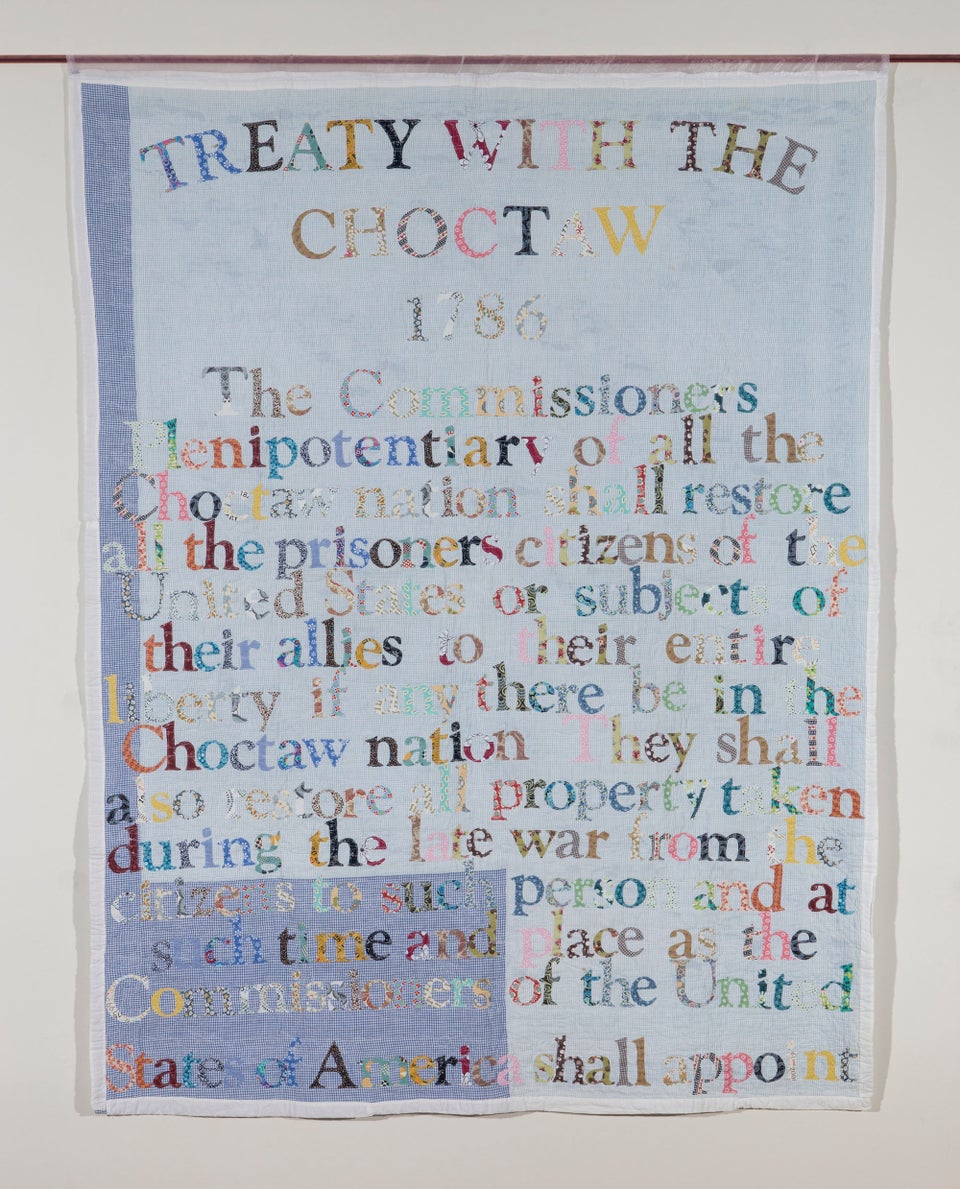 TREATY WITH THE
CHOCTAW
1786
The Commissioners
Plenipotentiary of all the
Choctaw nation shall restore
all the prisoners citizens of the
United States or subjects of
their allies to their entire
liberty if any there be in the
Choctaw nation They shall
also restore all property taken
during the late war from the
citizens to such person and at
such time and place as the
Commissioners of the United
States of America shall appoint